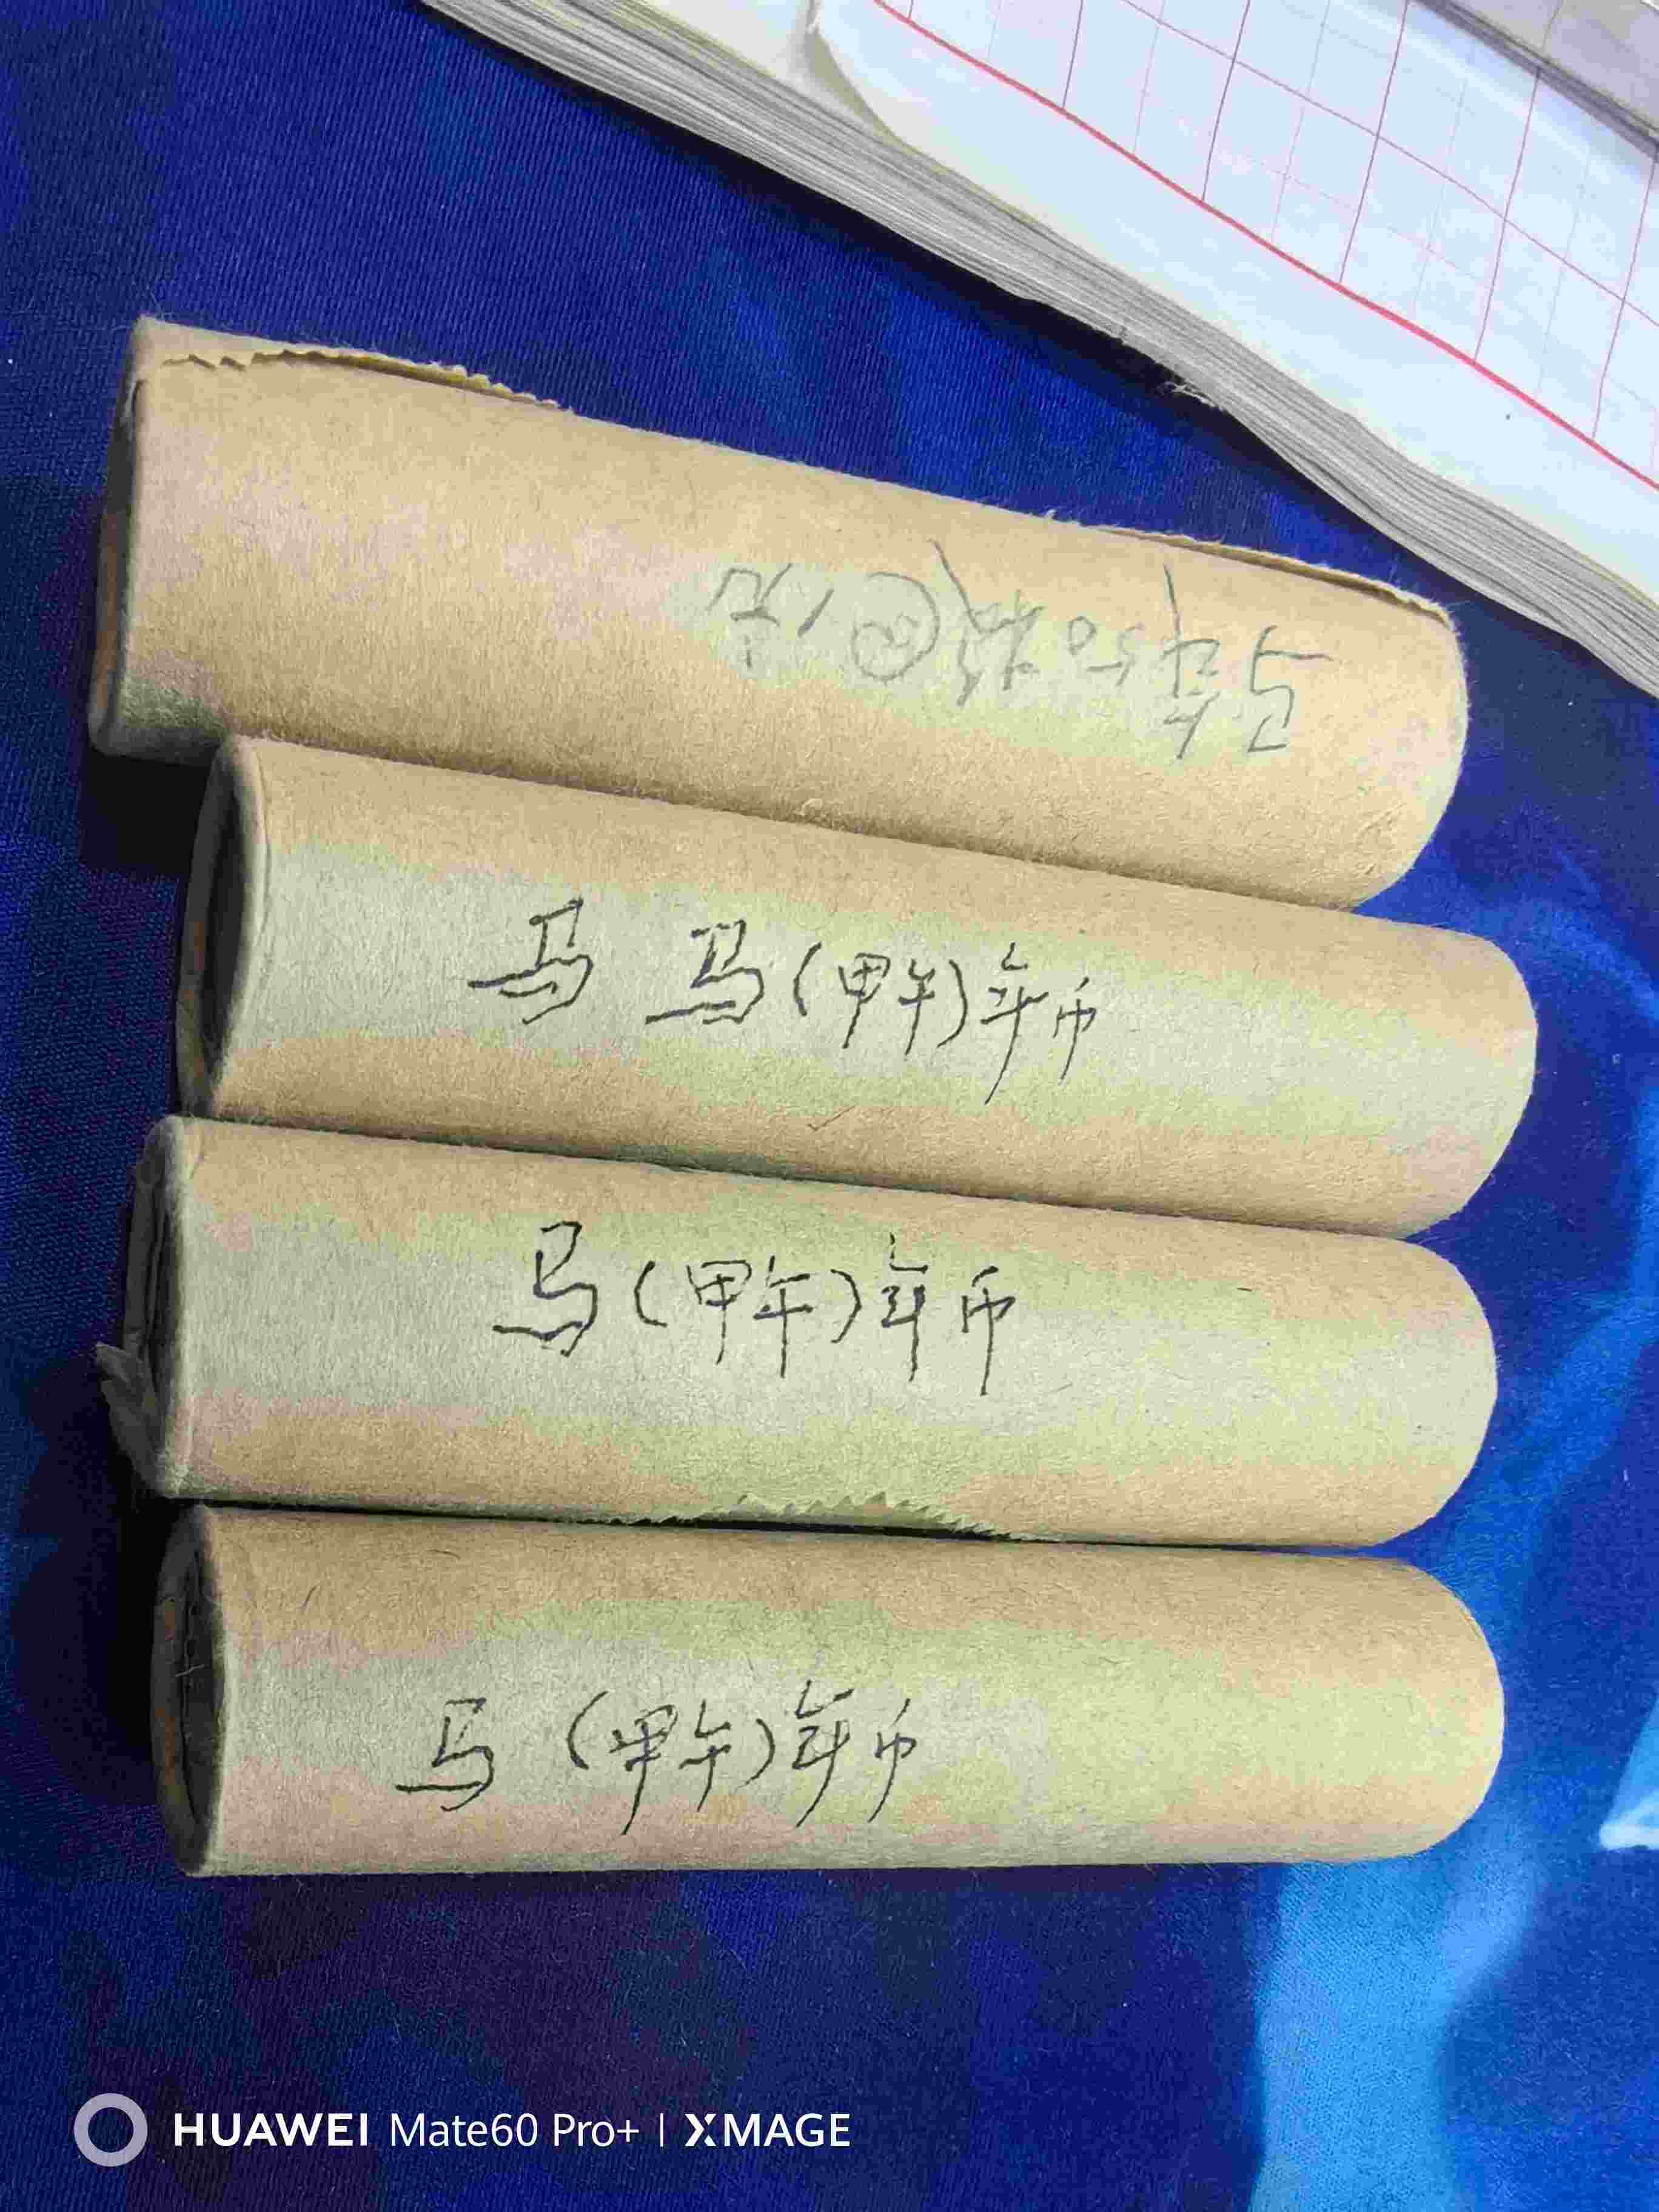 马年50枚@1元
马 马(甲午)年币
马(甲午)年币
马(甲午)年币
HUAWEI Mate60 Pro+ | XMAGE